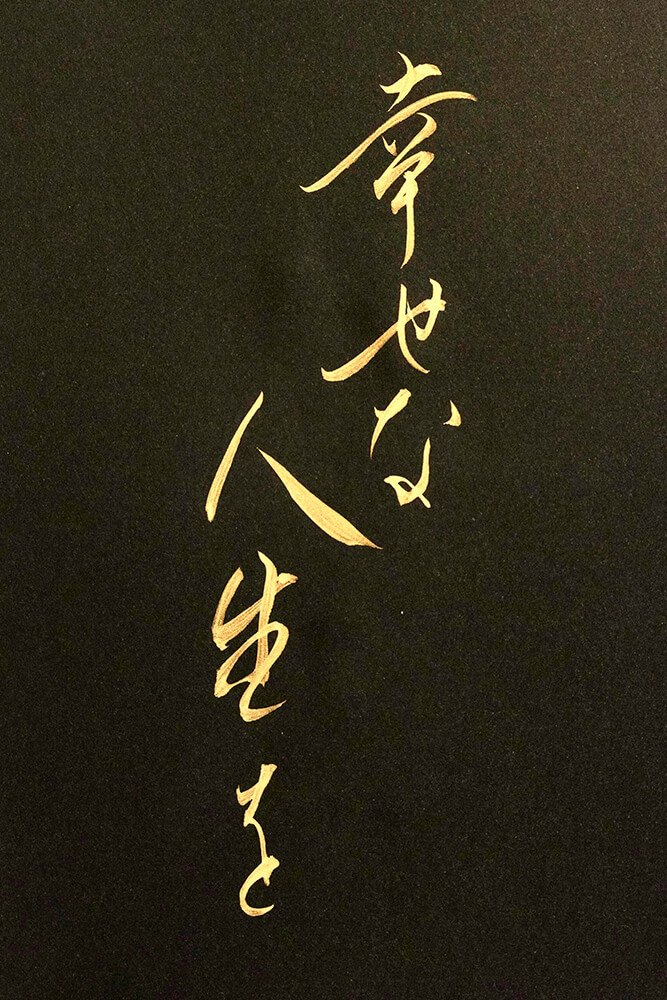 幸せな
人生を